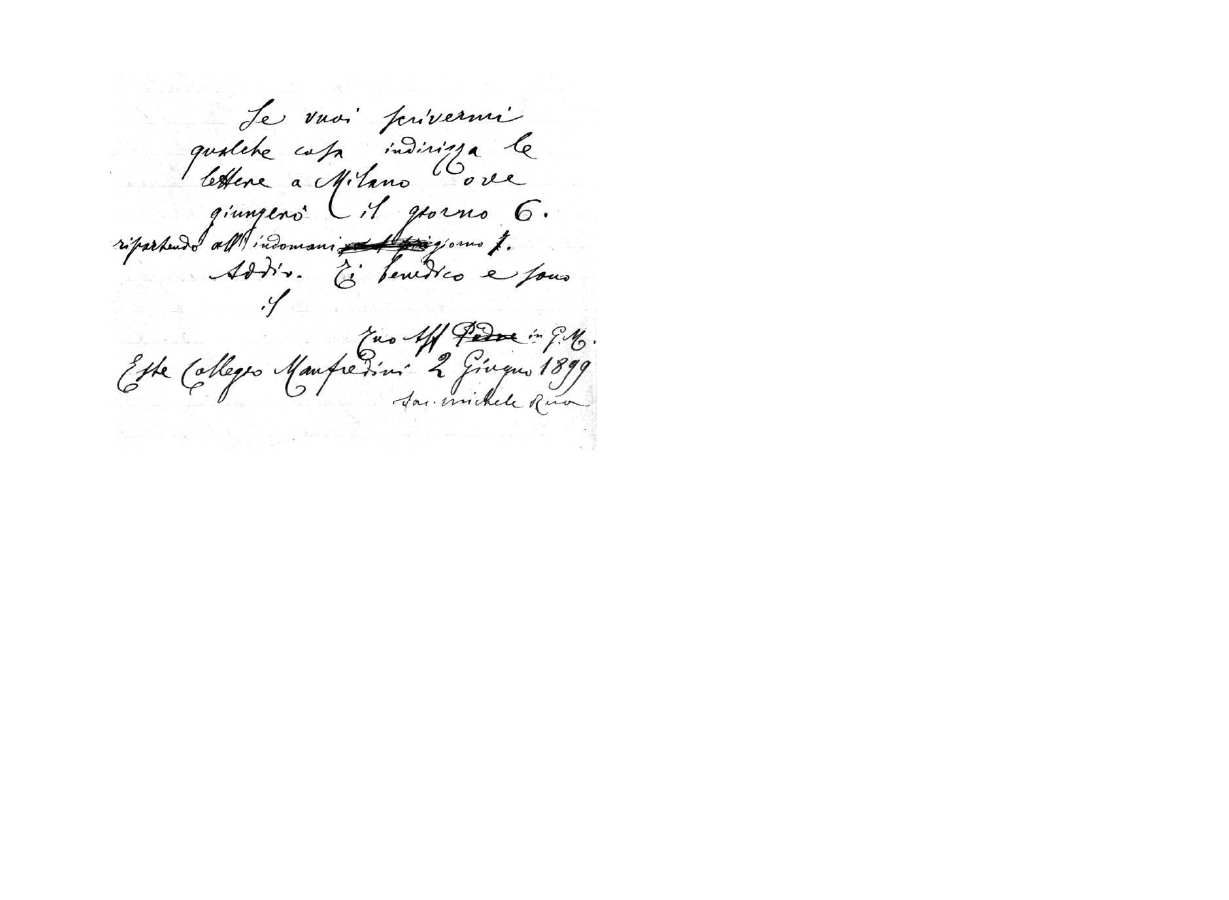 Se vuoi scrivermi
qualche cosa indirizza le
lettere a Milano ove
giungerò il giorno 6.
ripartendo all'indomani giorno 7.
Addio. Ti benedico e sono
il
Tuo Aff Padre in G. M.
Este Collegio Manfredini 2 Giugno 1899
Sac. Michele Rua